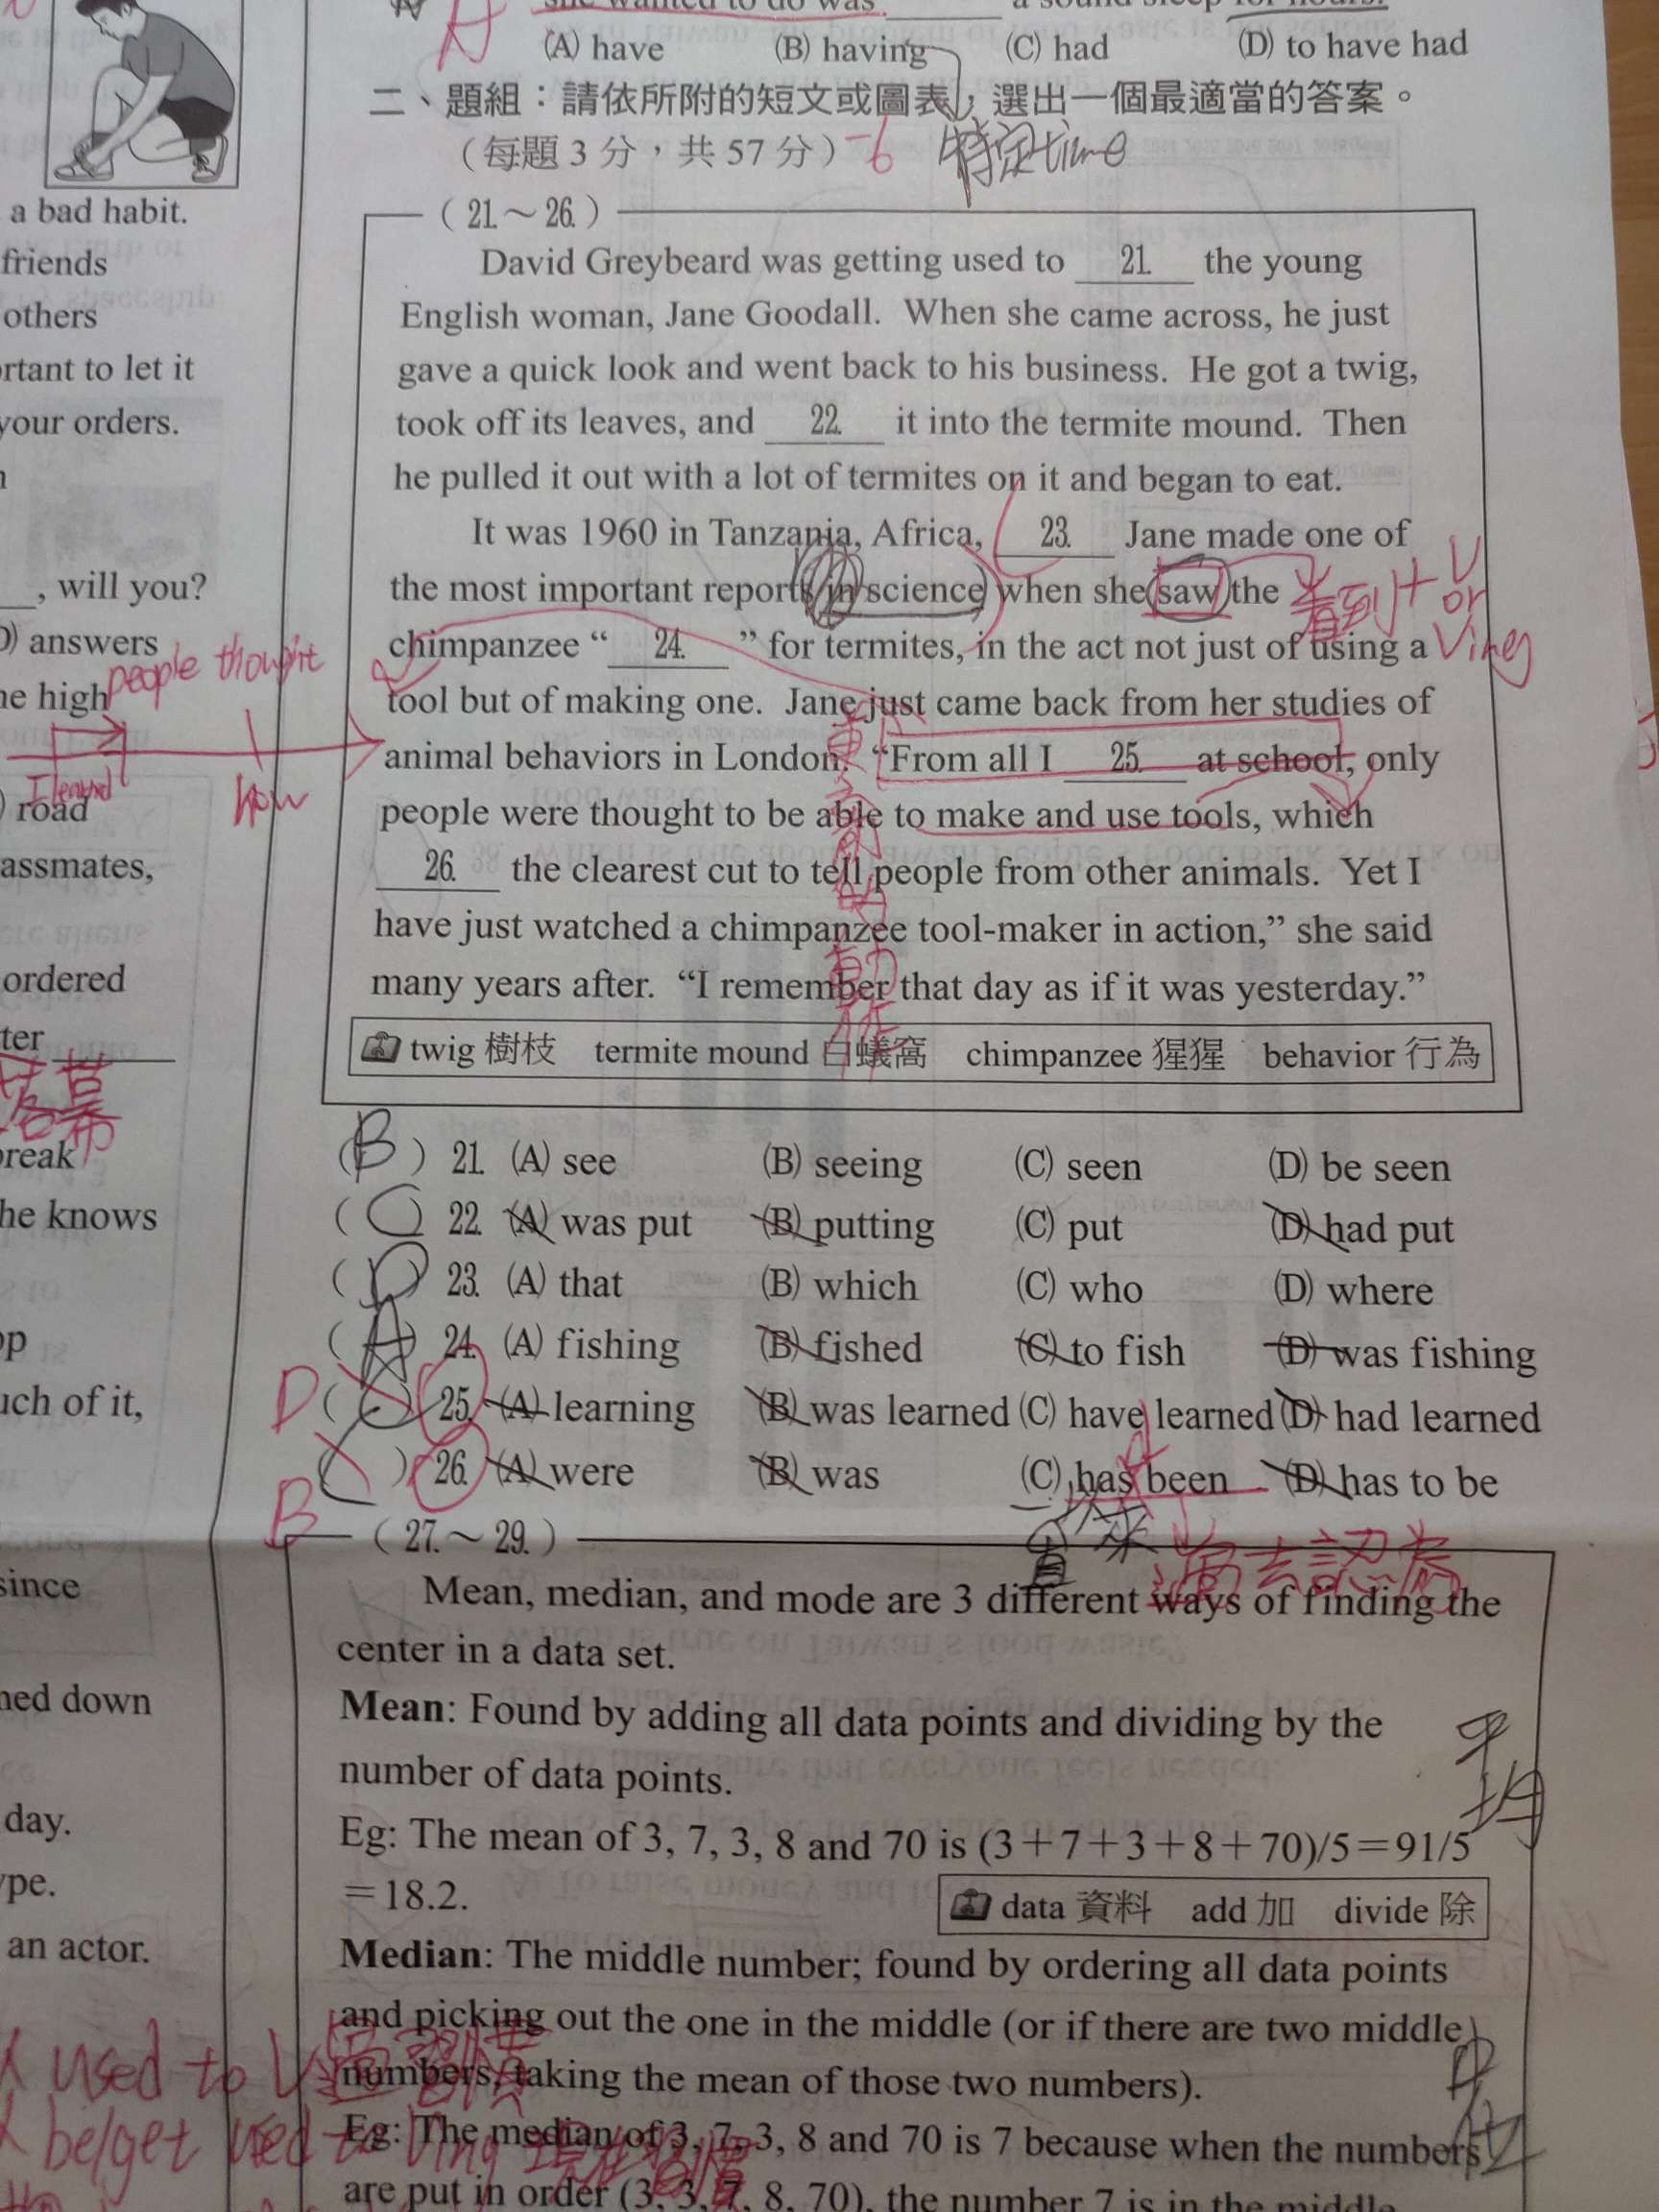 she wanted to do was ______ a sound sleep for hours.
(A) have (B) having (C) had (D) to have had
二、題組：請依所附的短文或圖表，選出一個最適當的答案。
（每題 3 分，共 57 分） -6 特定time
a bad habit.
friends
others
rtant to let it
your orders.
___, will you?
D) answers
he high
people thought
I learned
now
) road
assmates,
ordered
ter ______
落幕
break
he knows
op
uch of it,
since
ned down
day.
ype.
an actor.
（21.～26.）
David Greybeard was getting used to 21. the young
English woman, Jane Goodall. When she came across, he just
gave a quick look and went back to his business. He got a twig,
took off its leaves, and 22. it into the termite mound. Then
he pulled it out with a lot of termites on it and began to eat.
It was 1960 in Tanzania, Africa, 23. Jane made one of
the most important reports in science when she saw the
看到+V or Ving
chimpanzee “ 24. ” for termites, in the act not just of using a
tool but of making one. Jane just came back from her studies of
animal behaviors in London. “From all I 25. at school, only
people were thought to be able to make and use tools, which
26. the clearest cut to tell people from other animals. Yet I
have just watched a chimpanzee tool-maker in action,” she said
many years after. “I remember that day as if it was yesterday.”
twig 樹枝 termite mound 白蟻窩 chimpanzee 猩猩 behavior 行為
(B) 21. (A) see (B) seeing (C) seen (D) be seen
(C) 22. (A) was put (B) putting (C) put (D) had put
(D) 23. (A) that (B) which (C) who (D) where
(A) 24. (A) fishing (B) fished (C) to fish (D) was fishing
D (C) 25. (A) learning (B) was learned (C) have learned (D) had learned
B (C) 26. (A) were (B) was (C) has been (D) has to be
過去認為
（27.～29.）
Mean, median, and mode are 3 different ways of finding the
center in a data set.
Mean: Found by adding all data points and dividing by the
number of data points.
平均
Eg: The mean of 3, 7, 3, 8 and 70 is (3＋7＋3＋8＋70)/5＝91/5
＝18.2.
data 資料 add 加 divide 除
Median: The middle number; found by ordering all data points
and picking out the one in the middle (or if there are two middle
numbers, taking the mean of those two numbers).
中位
Eg: The median of 3, 7, 3, 8 and 70 is 7 because when the numbers
are put in order (3, 3, 7, 8, 70), the number 7 is in the middle.
used to V
be/get used to Ving